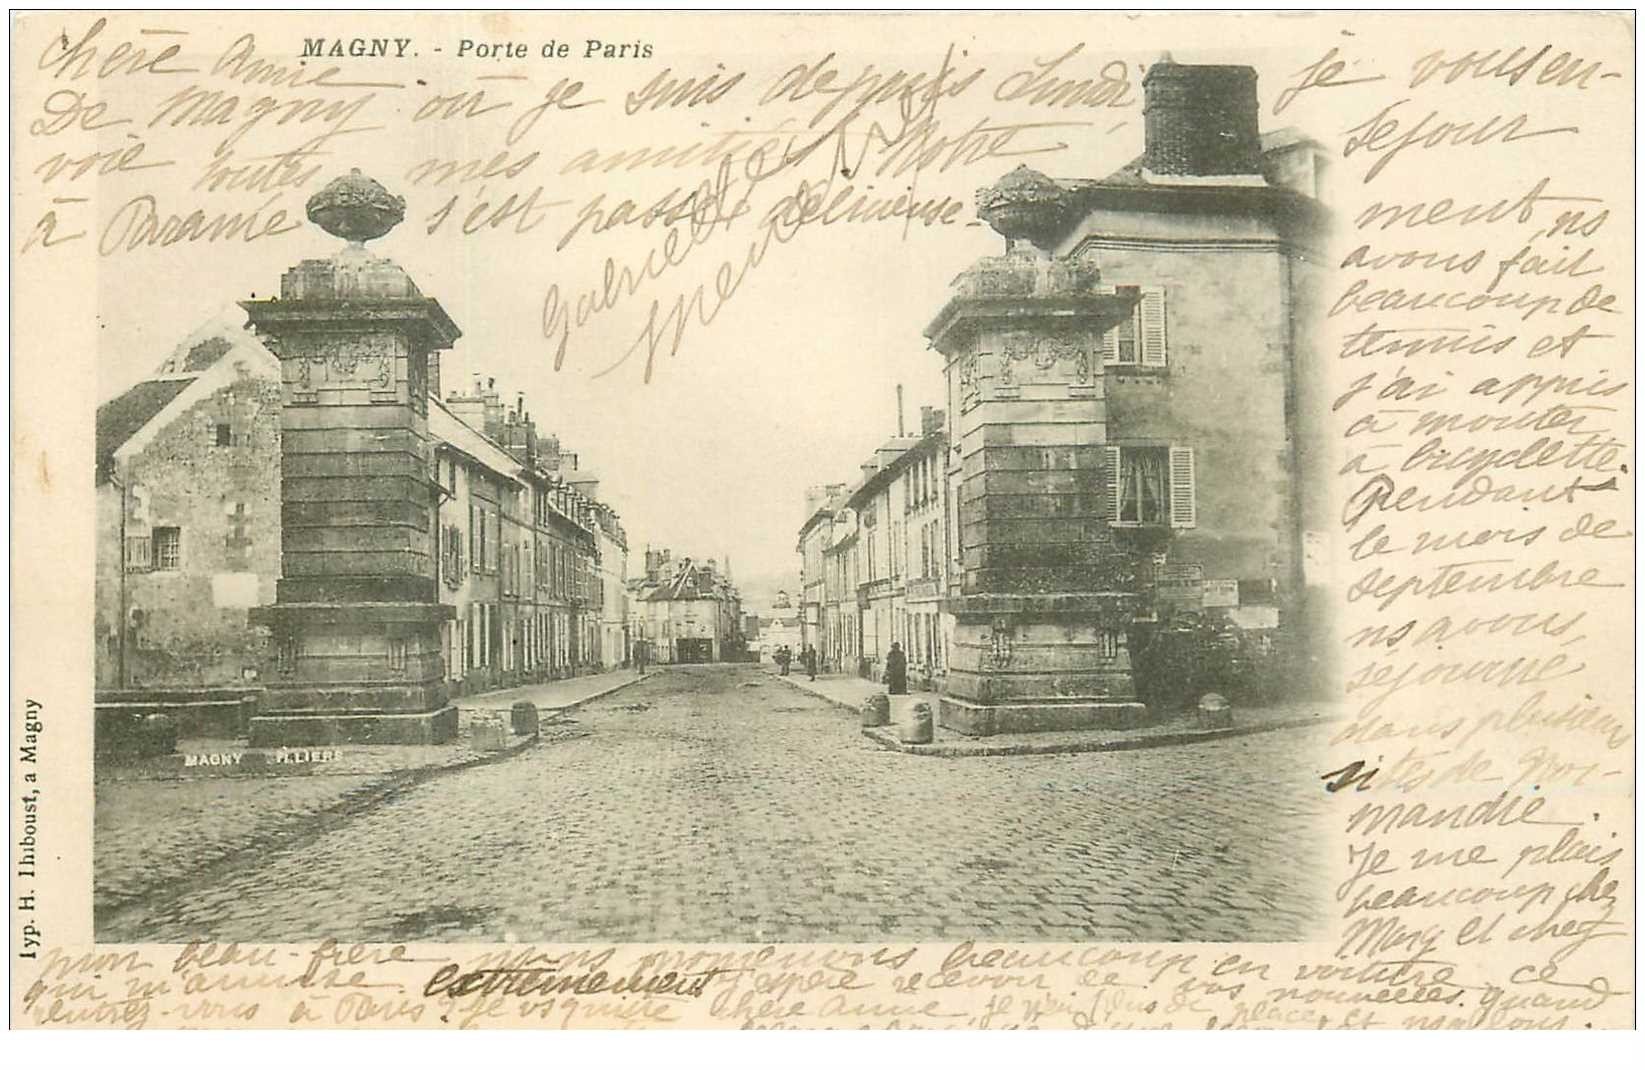 MAGNY. - Porte de Paris
Chère Annie
De Magny où je suis depuis Lundi je vous en-
voie toutes mes amitiés Notre séjour
à Paramé s'est passé délicieuse-
ment, ns
avons fait
beaucoup de
tennis et
j'ai appris
à monter
à bicyclette.
Pendant
le mois de
septembre
ns avons
séjourné
dans plusieurs
sites de Nor-
mandie.
Je me plais
beaucoup chez
Mary et chez
mon beau-frère nous nous promenons beaucoup en voiture ce
qui m'amuse extrêmement J'espère recevoir de vos nouvelles. Quand
rentrez-vous à Paris? Je vs quitte chère Annie, je n'ai plus de place et
Gabrielle
MAGNY PILIERS
Typ. H. Thiboust, a Magny